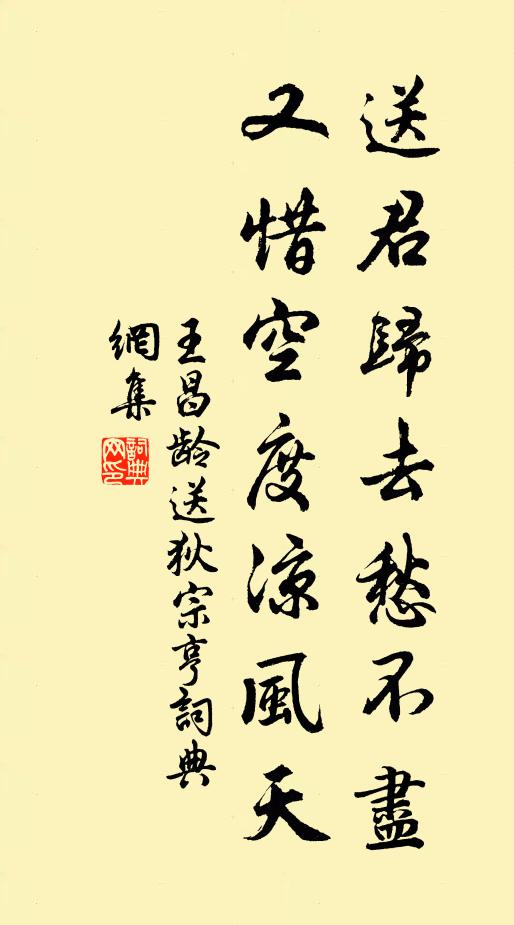 送君歸去愁不盡
又惜空度涼風天
王昌齡送狄宗亨詞典
網集
詞典网印